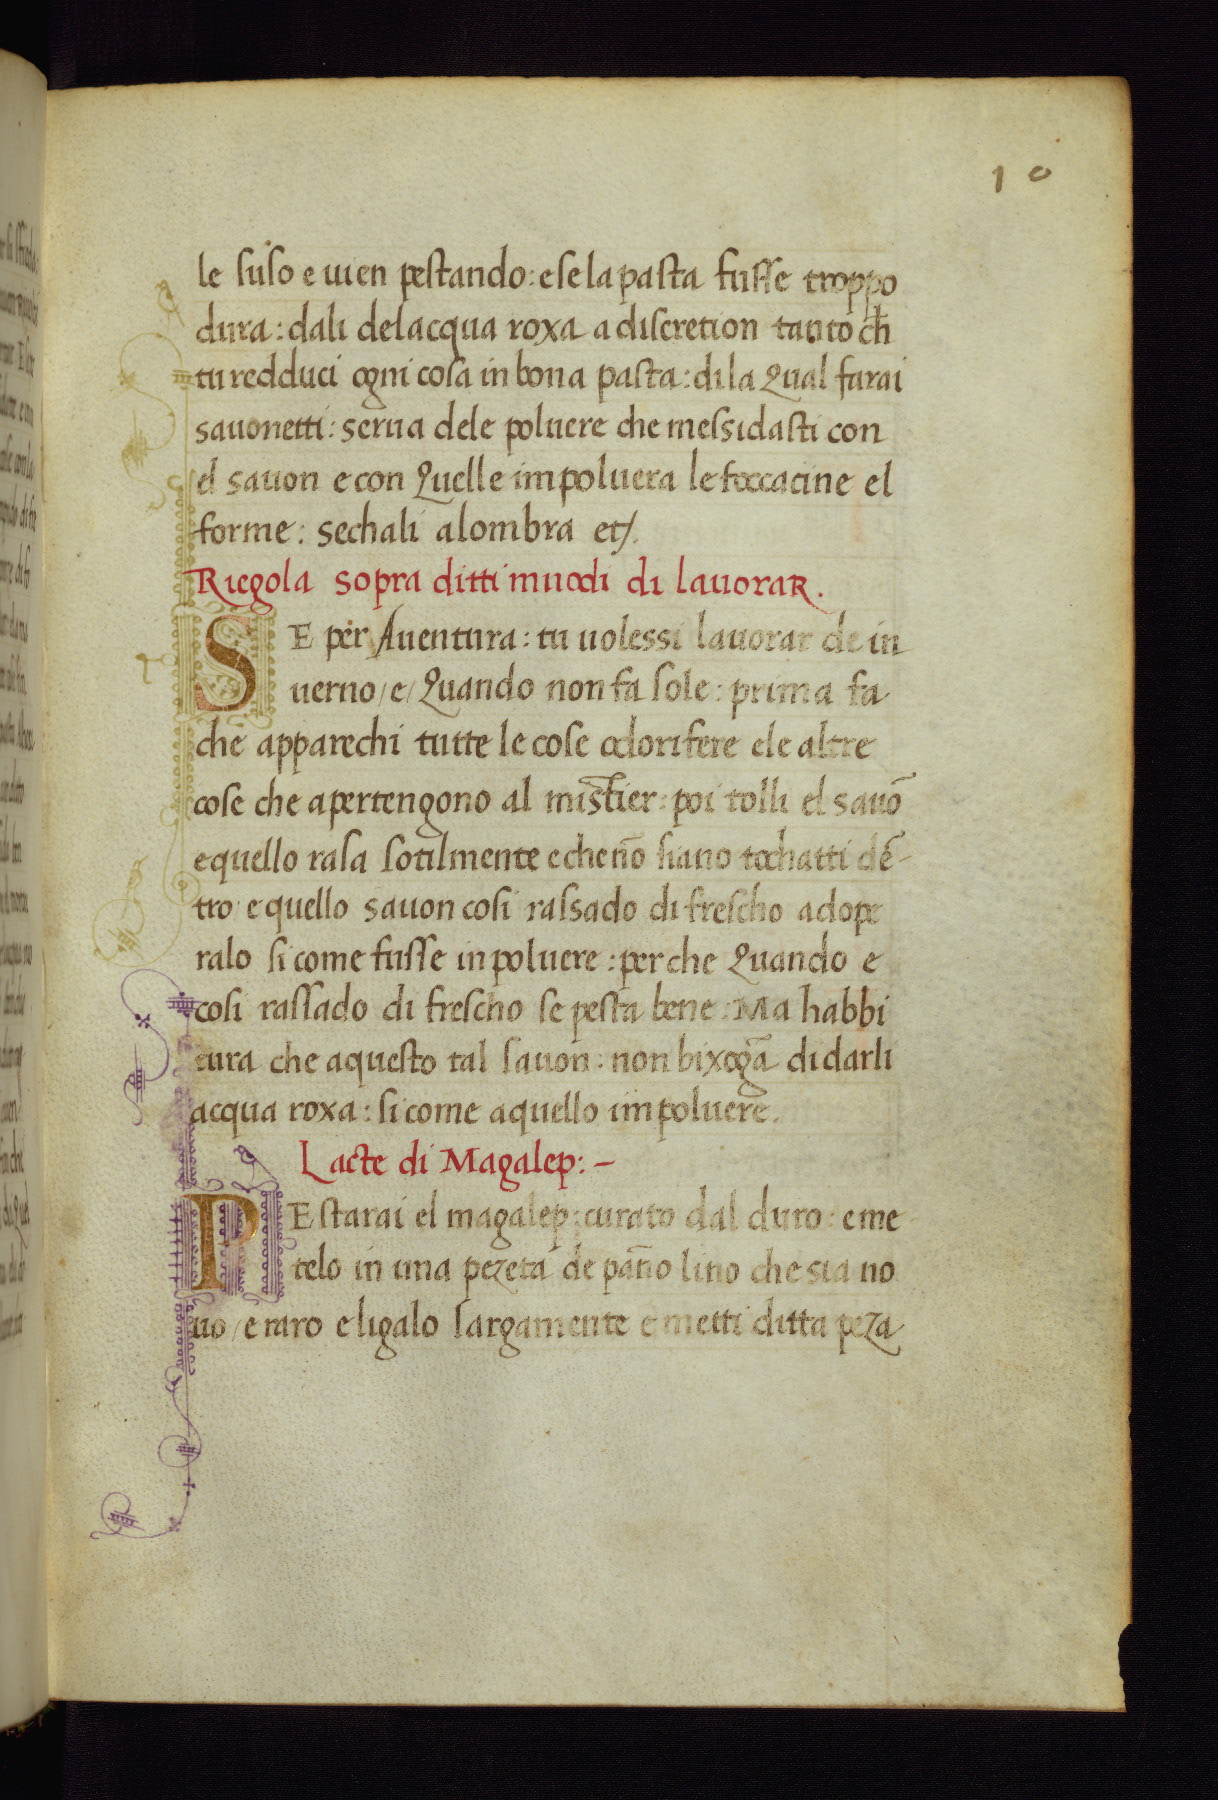 10
le suso e uien pestando: e se la pasta fusse troppo
dura: dali del acqua roxa a discretion tanto ch̄
tu redduci ogni cosa in bona pasta: di la Qual farai
sauonetti: serua dele poluere che messidasti con
el sauon e con Quelle impoluera le foccacine el
forme: sechali alombra et/.
Riegola sopra ditti muodi di lauorar.
SE per Auentura: tu uolessi lauorar de in
uerno/e/Quando non fa sole: prima fa
che apparechi tutte le cose odorifere e le altre
cose che apertengono al mistier: poi tolli el sauō
e quello rasa sotilmente e che nō siano tochatti dē-
tro e quello sauon cosi rassado di frescho adope
ralo si come fusse in poluere: perche Quando e
cosi rassado di frescho se pesta bene. Ma habbi
cura che aquesto tal sauon: non bixogā di darli
acqua roxa: si come aquello impoluere.
Lacte di Magalep:-
PEstarai el magalep: curato dal duro: e me
telo in una pezeta de pan̄o lino che sia no
uo/e raro e ligalo largamente e metti ditta peza